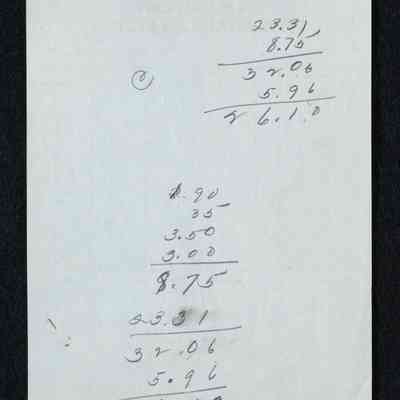 23.31
8.75
32.06
5.96
26.10
1.90
35
3.50
3.00
8.75
23.31
32.06
5.96